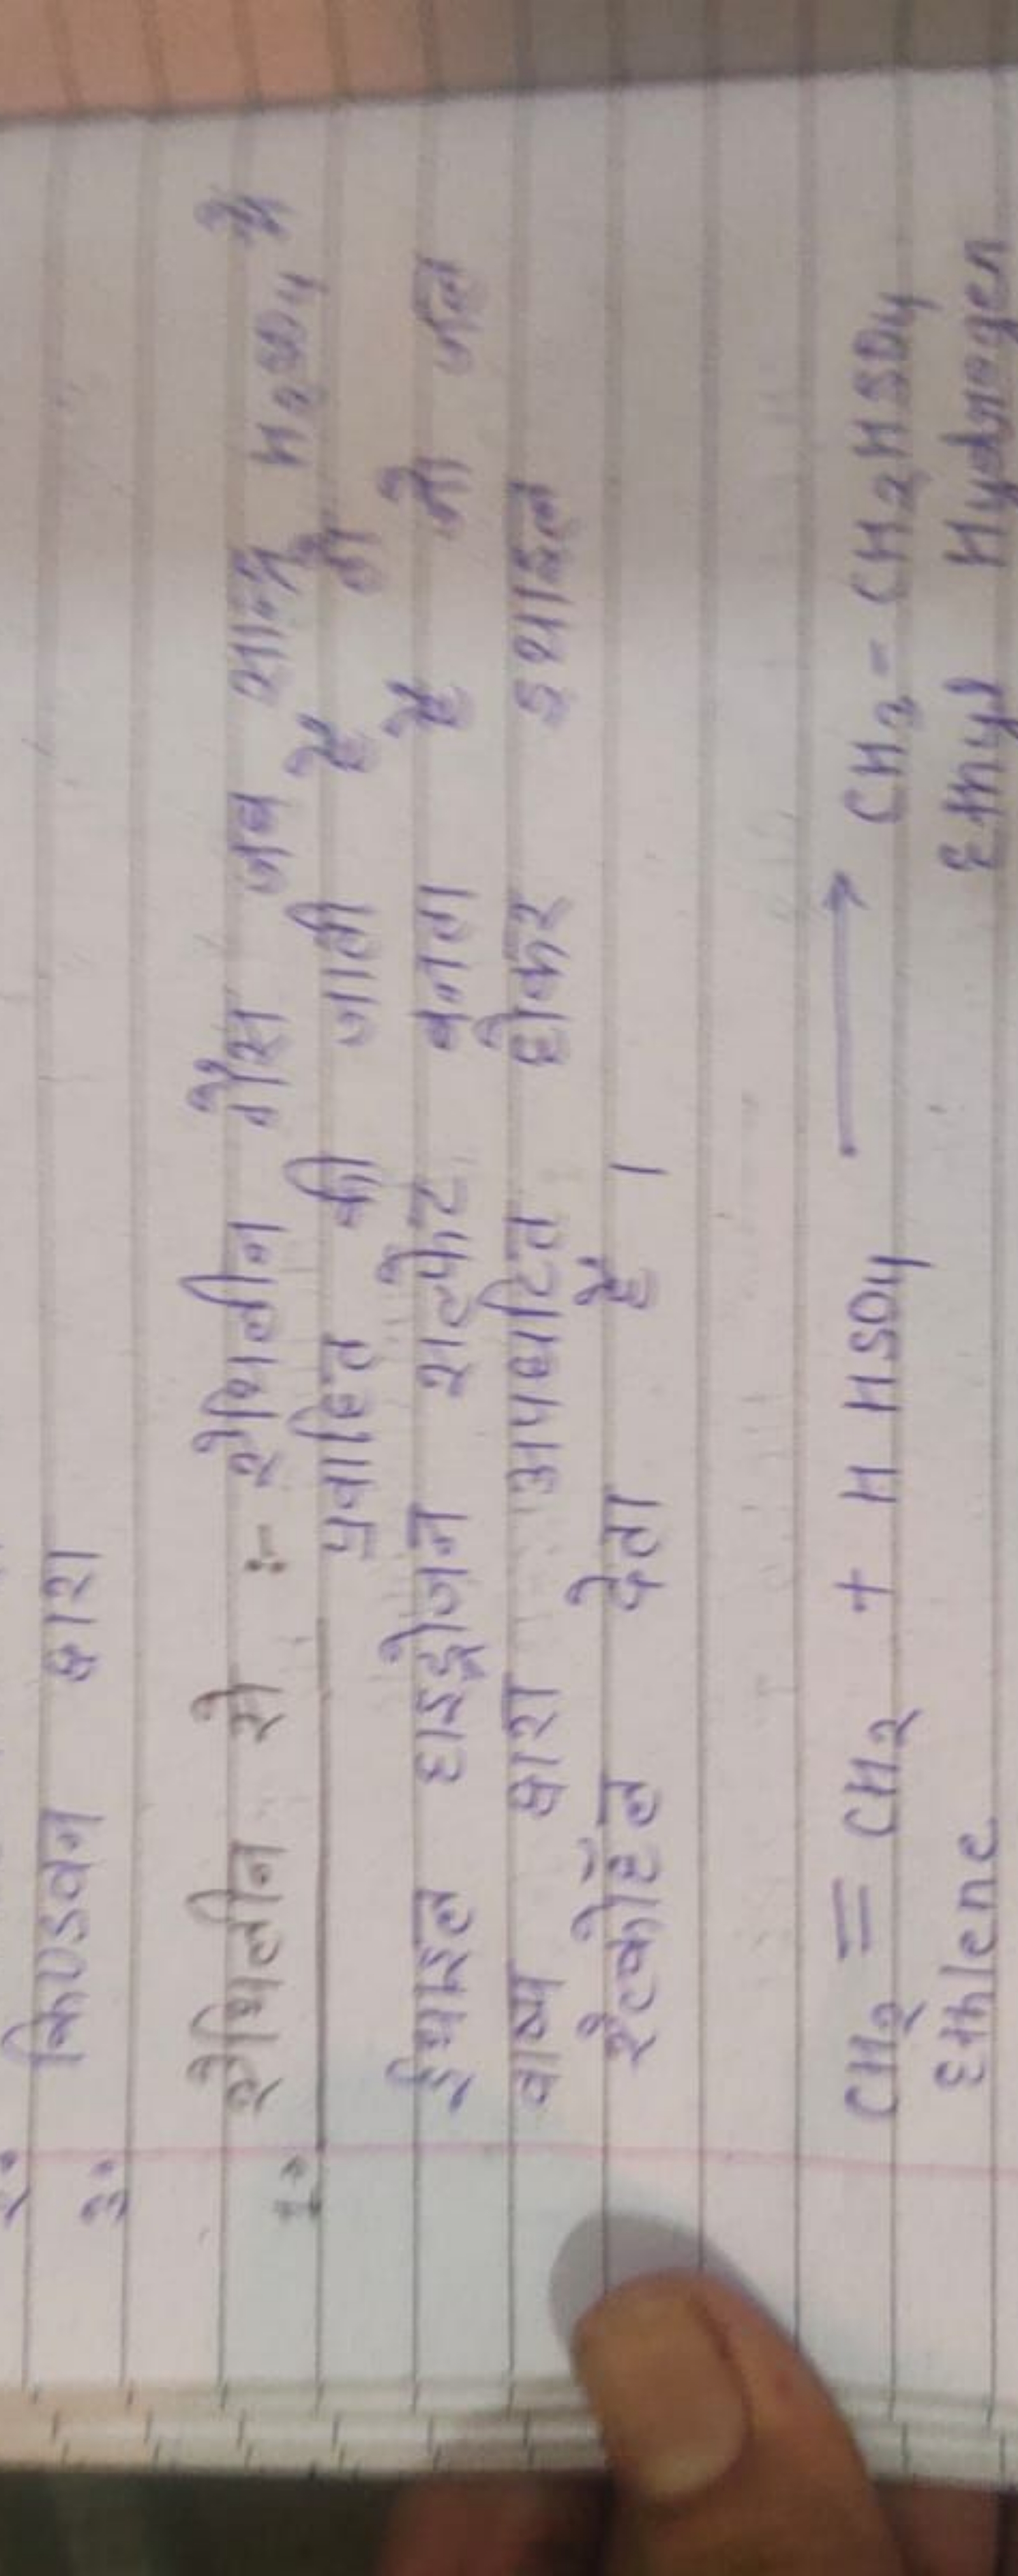 2.
3. किण्डवन द्वारा
1. ऐथिलीन से :- ऐथिलीन गैस जब सान्द्र H2SO4 में
प्रवाहित की जाती है तो
ईथाइल हाइड्रोजन सल्फेट बनता है जो जल
वाष्प द्वारा अपघटित होकर इथाइल
ऐल्कोहॉल देता है ।
CH2 = CH2 + H HSO4 → CH3 - CH2HSO4
Ethlene Ethyl Hydrogen